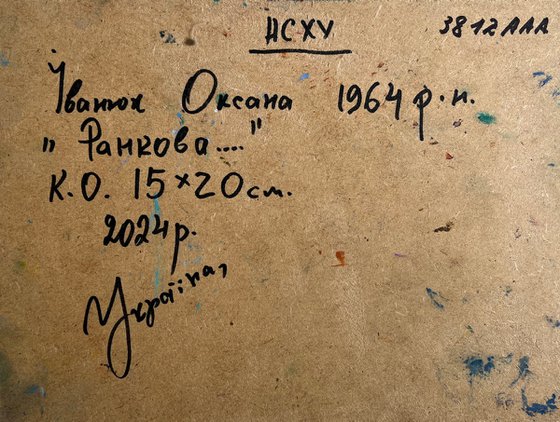 НСХУ
3812AAA
Іванюк Оксана 1964 р.н.
„ Ранкова.... "
К.О. 15×20 см.
2024 р.
Україна,